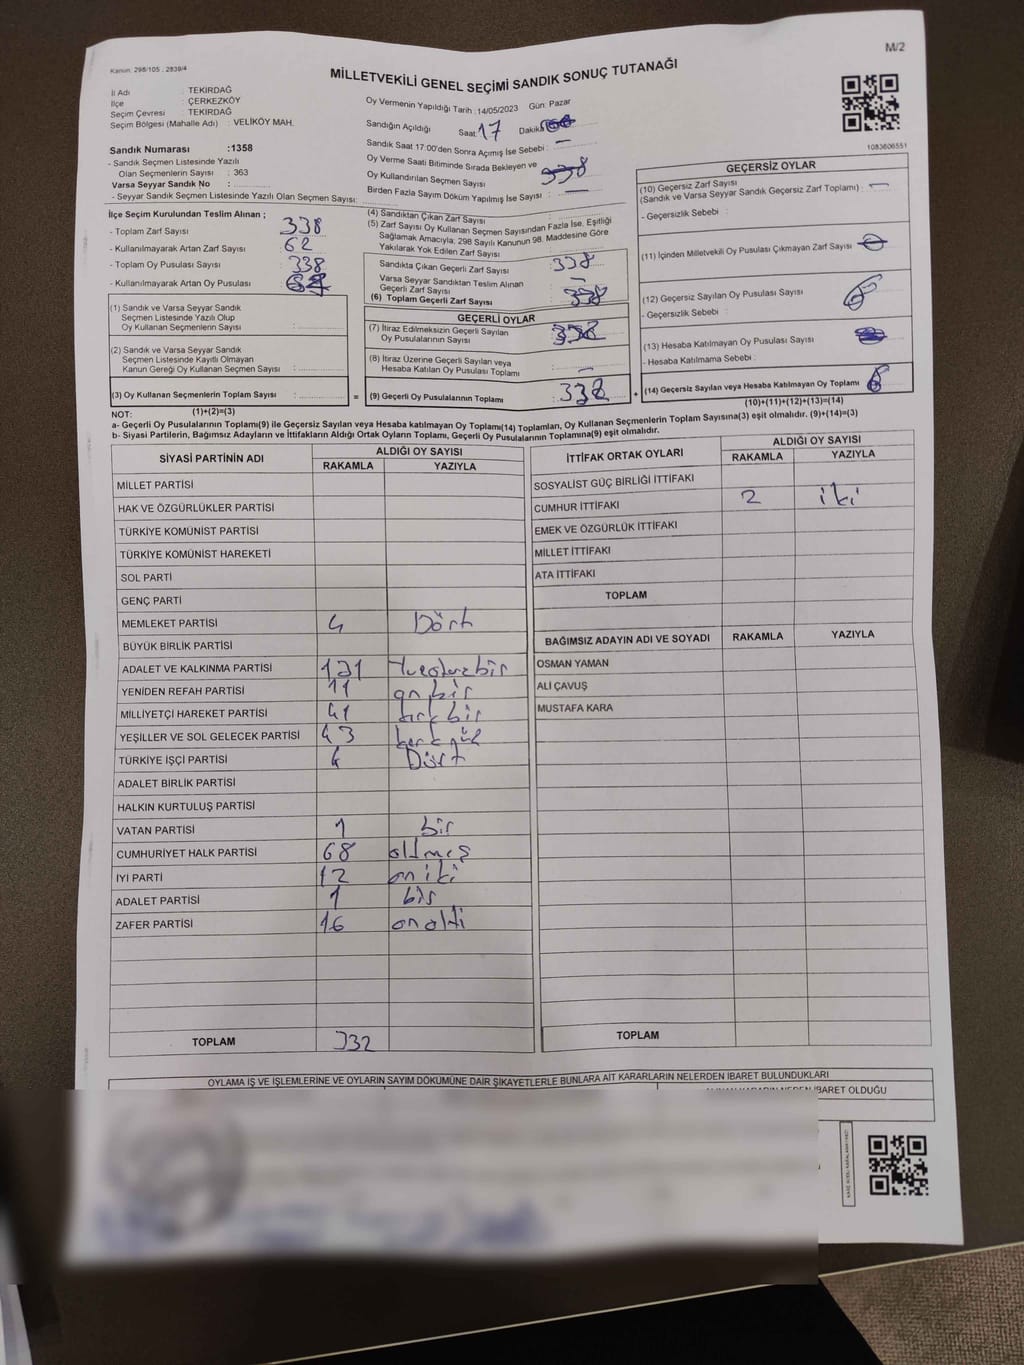 M/2
Kanun. 298/105 . 2839/4
MİLLETVEKİLİ GENEL SEÇİMİ SANDIK SONUÇ TUTANAĞI
İl Adı : TEKİRDAĞ
İlçe : ÇERKEZKÖY
Seçim Çevresi : TEKİRDAĞ
Seçim Bölgesi (Mahalle Adı) : VELİKÖY MAH.
Sandık Numarası :1358
- Sandık Seçmen Listesinde Yazılı
Olan Seçmenlerin Sayısı : 363
Varsa Seyyar Sandık No :
- Seyyar Sandık Seçmen Listesinde Yazılı Olan Seçmen Sayısı:
Oy Vermenin Yapıldığı Tarih :14/05/2023 Gün: Pazar
Sandığın Açıldığı Saat 17 Dakika
Sandık Saat 17:00'den Sonra Açımış İse Sebebi : —
Oy Verme Saati Bitiminde Sırada Bekleyen ve
Oy Kullandırılan Seçmen Sayısı :
Birden Fazla Sayım Döküm Yapılmış İse Sayısı : —
1083606551
İlçe Seçim Kurulundan Teslim Alınan ;
- Toplam Zarf Sayısı : 338
- Kullanılmayarak Artan Zarf Sayısı : 62
- Toplam Oy Pusulası Sayısı : 338
- Kullanılmayarak Artan Oy Pusulası :
(1) Sandık ve Varsa Seyyar Sandık
Seçmen Listesinde Yazılı Olup
Oy Kullanan Seçmenlerin Sayısı :
(2) Sandık ve Varsa Seyyar Sandık
Seçmen Listesinde Kayıtlı Olmayan
Kanun Gereği Oy Kullanan Seçmen Sayısı :
(3) Oy Kullanan Seçmenlerin Toplam Sayısı :
(1)+(2)=(3)
(4) Sandıktan Çıkan Zarf Sayısı :
(5) Zarf Sayısı Oy Kullanan Seçmen Sayısından Fazla İse, Eşitliği
Sağlamak Amacıyla; 298 Sayılı Kanunun 98. Maddesine Göre
Yakılarak Yok Edilen Zarf Sayısı :
Sandıkta Çıkan Geçerli Zarf Sayısı : 338
Varsa Seyyar Sandıktan Teslim Alınan
Geçerli Zarf Sayısı : —
(6) Toplam Geçerli Zarf Sayısı : 338
GEÇERLİ OYLAR
(7) İtiraz Edilmeksizin Geçerli Sayılan
Oy Pusulalarının Sayısı :
(8) İtiraz Üzerine Geçerli Sayılan veya
Hesaba Katılan Oy Pusulası Toplamı : —
= (9) Geçerli Oy Pusulalarının Toplamı :
GEÇERSİZ OYLAR
(10) Geçersiz Zarf Sayısı
(Sandık ve Varsa Seyyar Sandık Geçersiz Zarf Toplamı) : —
- Geçersizlik Sebebi :
(11) İçinden Milletvekili Oy Pusulası Çıkmayan Zarf Sayısı
(12) Geçersiz Sayılan Oy Pusulası Sayısı :
- Geçersizlik Sebebi :
(13) Hesaba Katılmayan Oy Pusulası Sayısı :
- Hesaba Katılmama Sebebi :
+ (14) Geçersiz Sayılan veya Hesaba Katılmayan Oy Toplamı :
(10)+(11)+(12)+(13)=(14)
NOT:
a- Geçerli Oy Pusulalarının Toplamı(9) ile Geçersiz Sayılan veya Hesaba katılmayan Oy Toplamı(14) Toplamları, Oy Kullanan Seçmenlerin Toplam Sayısına(3) eşit olmalıdır. (9)+(14)=(3)
b- Siyasi Partilerin, Bağımsız Adayların ve İttifakların Aldığı Ortak Oyların Toplamı, Geçerli Oy Pusulalarının Toplamına(9) eşit olmalıdır.
SİYASİ PARTİNİN ADI ALDIĞI OY SAYISI
RAKAMLA YAZIYLA
MİLLET PARTİSİ
HAK VE ÖZGÜRLÜKLER PARTİSİ
TÜRKİYE KOMÜNİST PARTİSİ
TÜRKİYE KOMÜNİST HAREKETİ
SOL PARTİ
GENÇ PARTİ
MEMLEKET PARTİSİ 4 Dört
BÜYÜK BİRLİK PARTİSİ
ADALET VE KALKINMA PARTİSİ
YENİDEN REFAH PARTİSİ 11 on bir
MİLLİYETÇİ HAREKET PARTİSİ 41 kırk bir
YEŞİLLER VE SOL GELECEK PARTİSİ 43
TÜRKİYE İŞÇİ PARTİSİ 4 Dört
ADALET BİRLİK PARTİSİ
HALKIN KURTULUŞ PARTİSİ
VATAN PARTİSİ 1 bir
CUMHURİYET HALK PARTİSİ 68
İYİ PARTİ 12 on iki
ADALET PARTİSİ 1 bir
ZAFER PARTİSİ 16 on altı
TOPLAM 332
İTTİFAK ORTAK OYLARI ALDIĞI OY SAYISI
RAKAMLA YAZIYLA
SOSYALİST GÜÇ BİRLİĞİ İTTİFAKI
CUMHUR İTTİFAKI 2 iki
EMEK VE ÖZGÜRLÜK İTTİFAKI
MİLLET İTTİFAKI
ATA İTTİFAKI
TOPLAM
BAĞIMSIZ ADAYIN ADI VE SOYADI RAKAMLA YAZIYLA
OSMAN YAMAN
ALİ ÇAVUŞ
MUSTAFA KARA
TOPLAM
OYLAMA İŞ VE İŞLEMLERİNE VE OYLARIN SAYIM DÖKÜMÜNE DAİR ŞİKAYETLERLE BUNLARA AİT KARARLARIN NELERDEN İBARET BULUNDUKLARI
İBARET OLDUĞU